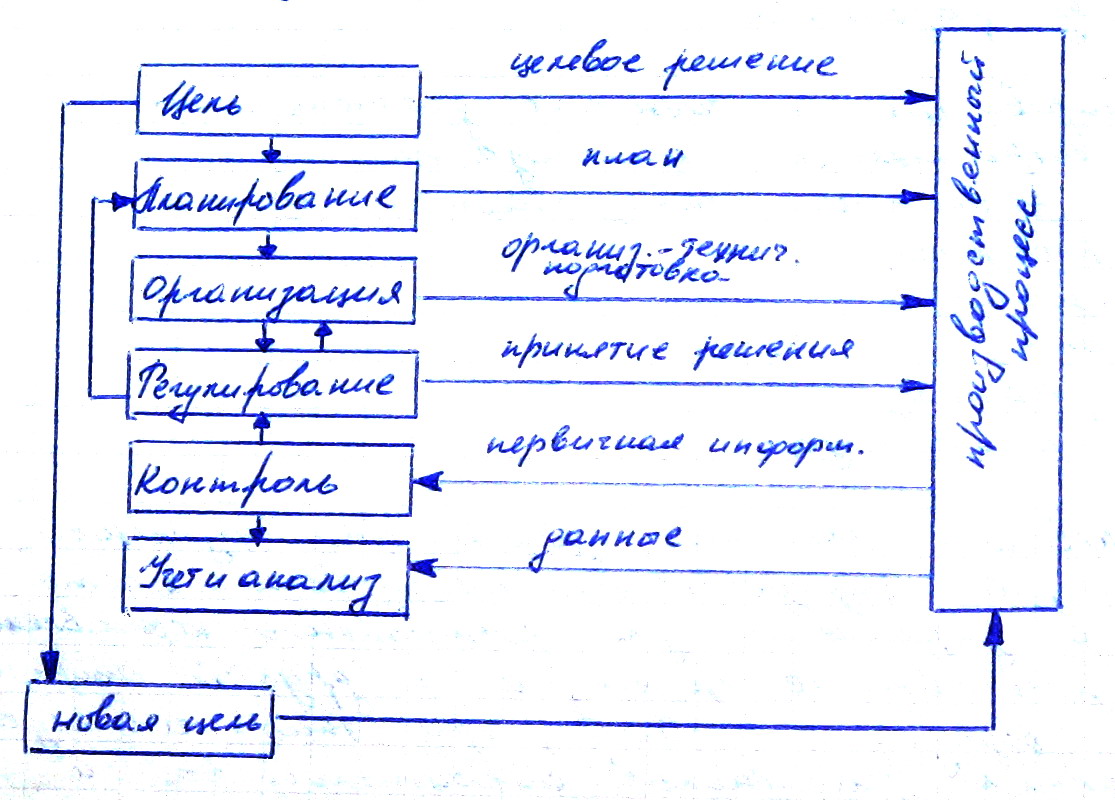 целевое решение
Цель
план
Планирование
организ.-технич.
подготовка
Организация
принятие решения
Регулирование
первичная информ.
Контроль
данные
Учет и анализ
новая цель
производственный
процесс